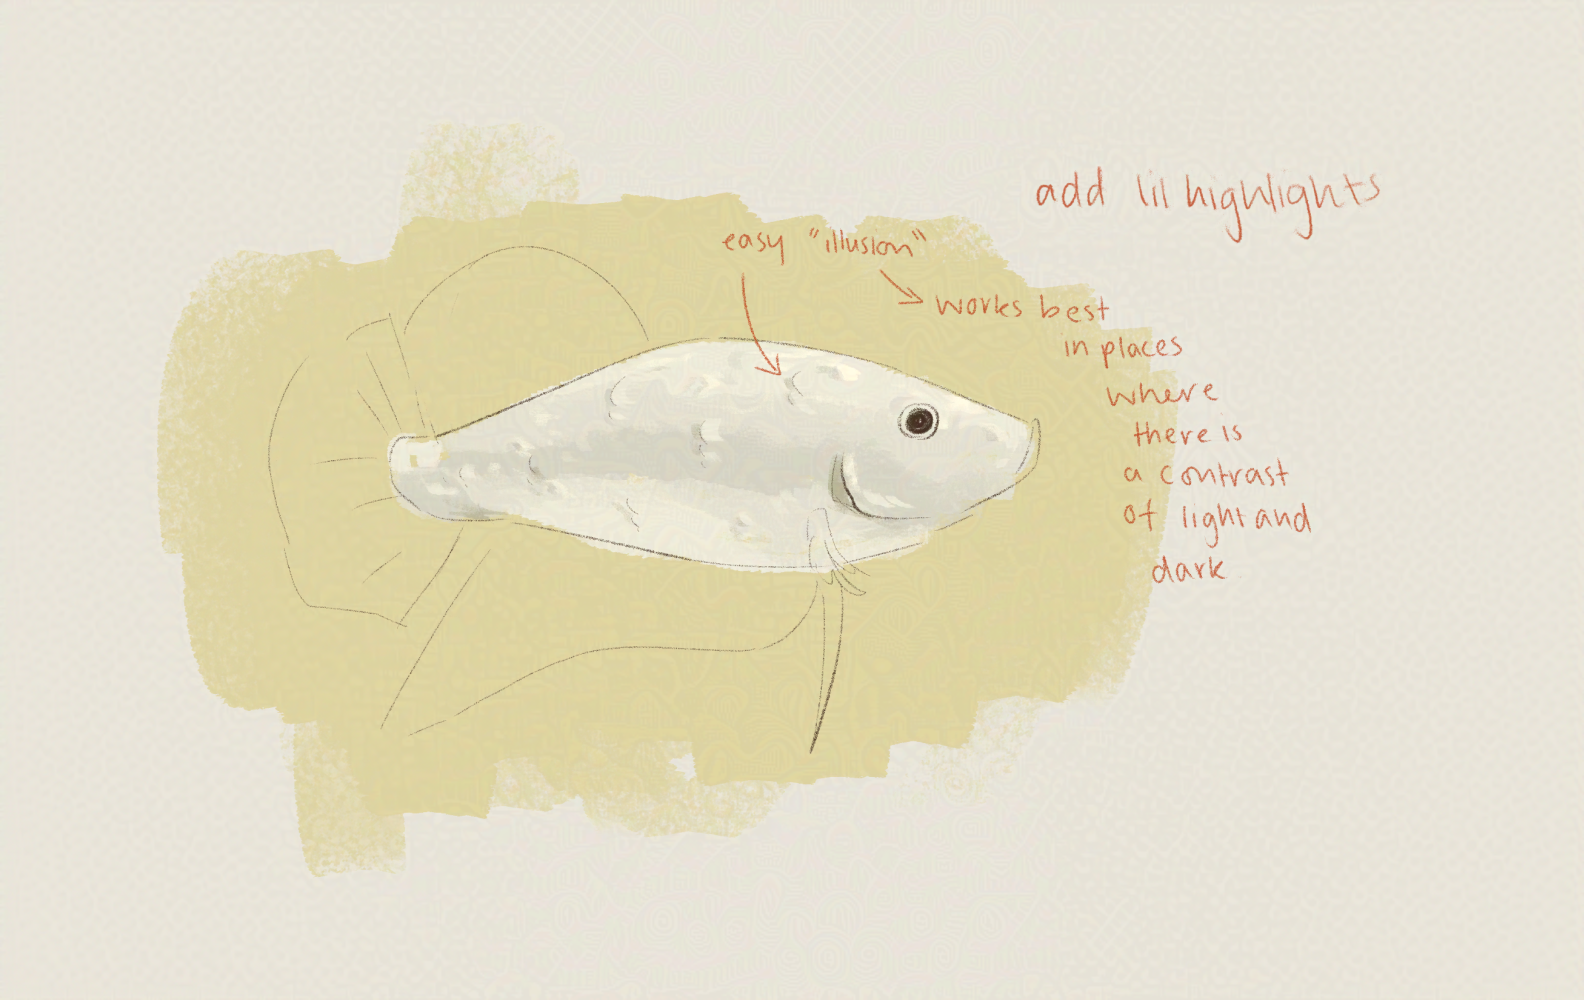 add lil highlights
easy "illusion"
works best
in places
where
there is
a contrast
of light and
dark